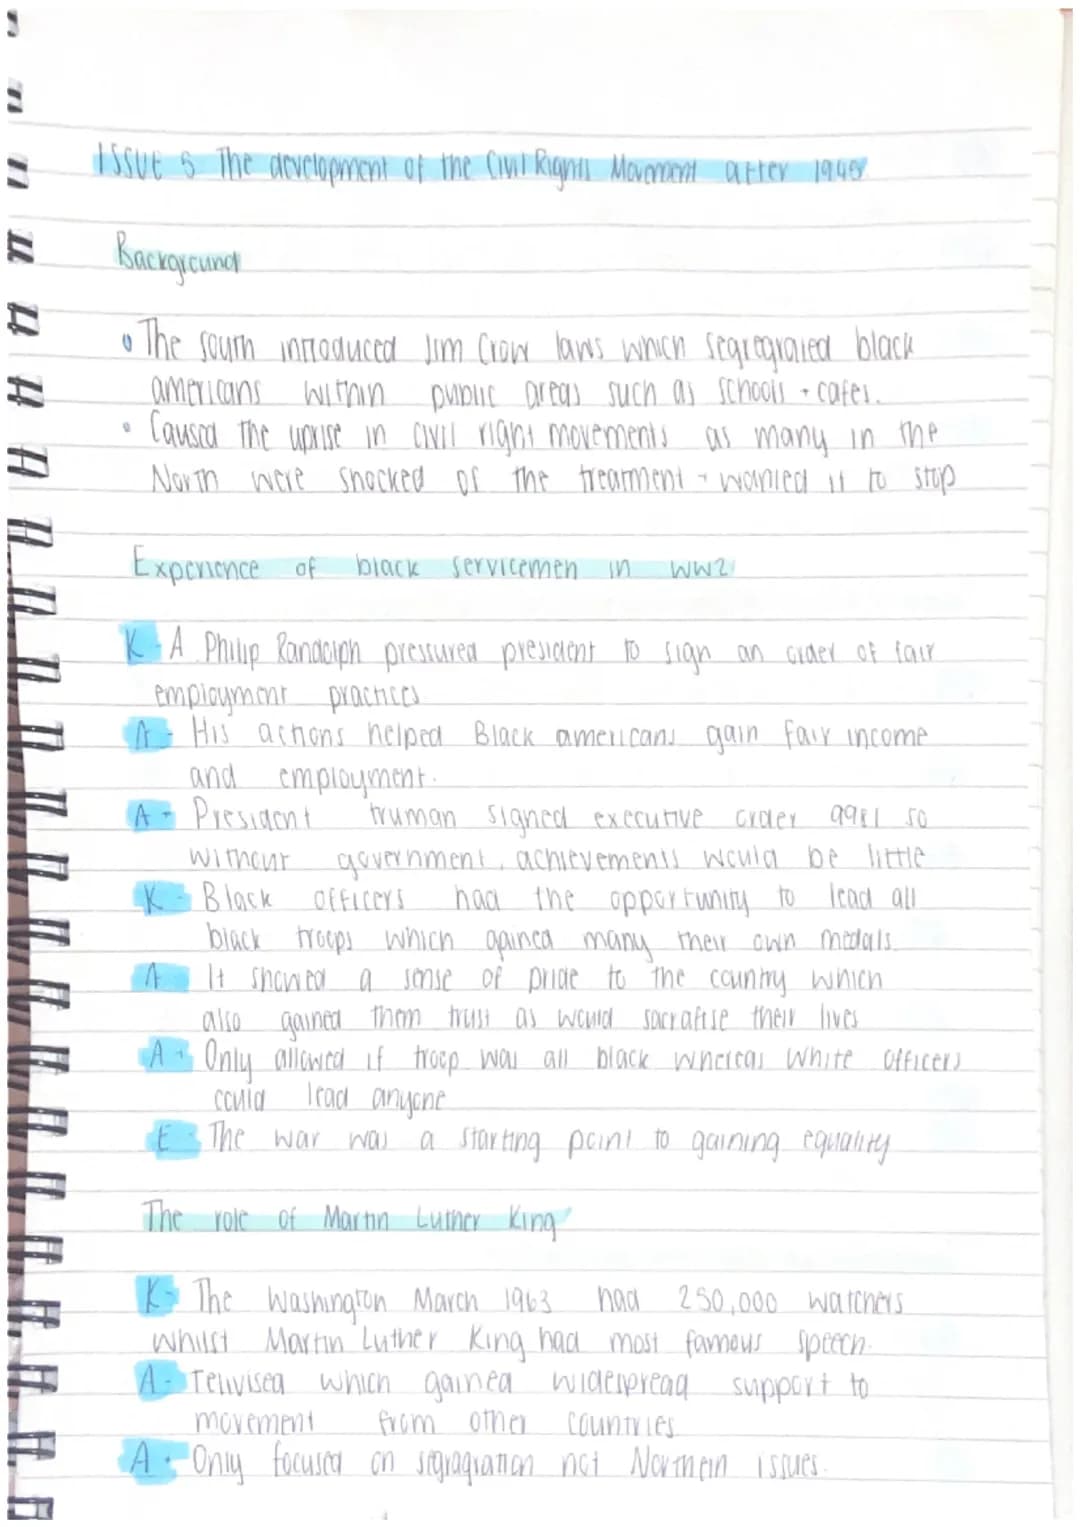 ISSUE 5 The development of the Civil Rights Movement after 1945
Background
• The south introduced Jim Crow laws which segregrated black
americans within public areas such as schools + cafes.
• Caused the uprise in civil right movements as many in the
North were shocked of the treatment + wanted it to stop
Experience of black servicemen in WW2
K - A. Philip Randolph pressured president to sign an order of fair
employment practices
A - His actions helped Black americans gain fair income
and employment.
A + President truman signed executive order 9981 so
without government, achievements would be little
K - Black officers had the opportunity to lead all
black troops which gained many their own medals.
A - It showed a sense of pride to the country which
also gained them trust as would sacrafise their lives
A + Only allowed if troop was all black whereas white officers
could lead anyone
E - The war was a starting point to gaining equality
The role of Martin Luther King
K - The Washington March 1963 had 250,000 watchers
whilst Martin Luther King had most famous speech.
A - Telivised which gained widespread support to
movement from other countries
A + Only focused on segragration not Northern issues.